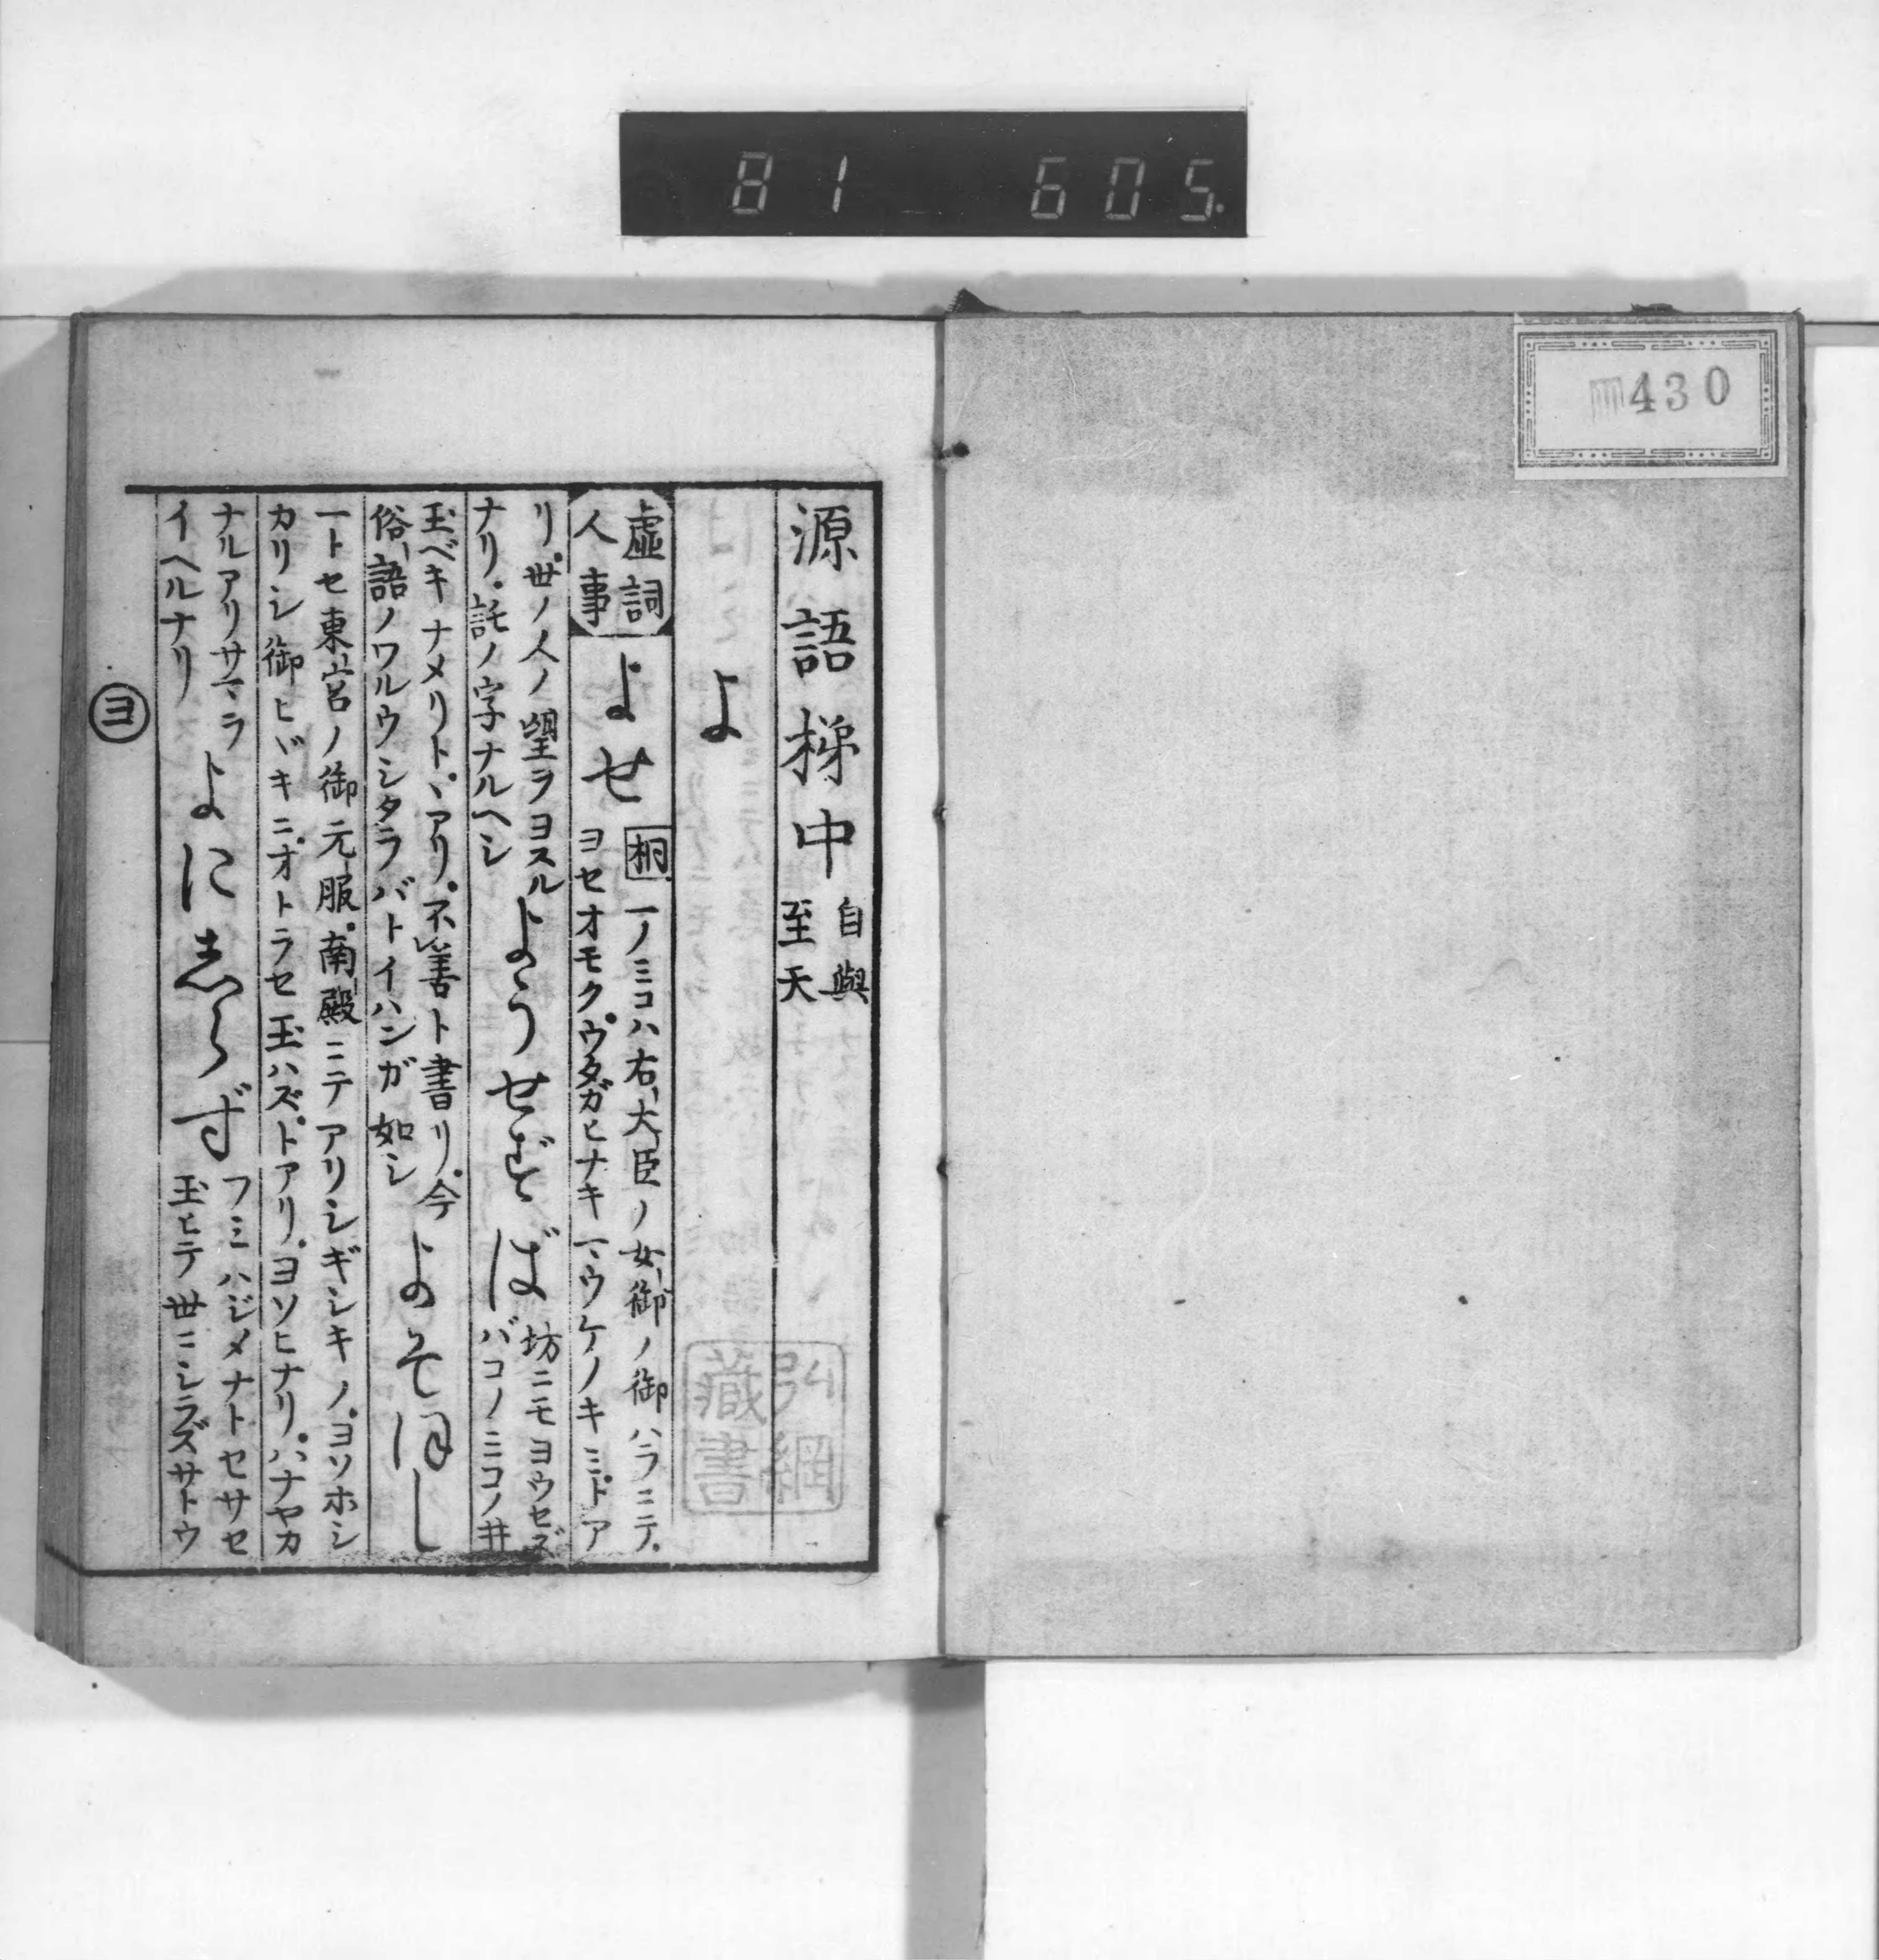 81 605.
430
源語梯中 自與
至天
よ
弘綱
蔵書
虚詞
人事
よせ
桐 一ノミコハ右大臣ノ女御ノ御ハラニテ。
ヨセオモク。ウタガヒナキマウケノキミ。トア
リ。世ノ人ノ望ヲヨスル
ナリ。託ノ字ナルヘシ
ようせずば
坊ニモヨウセズ
バコノミコノ井
玉ベキナメリト、アリ。不善ト書リ。今
俗語ノワルウシタラバトイハンガ如シ
よそほし
一トセ東宮ノ御元服。南殿ニテアリシギシキノ。ヨソホシ
カリシ御ヒヾキニ。オトラセ玉ハズ。トアリ。ヨソヒナリ。ハナヤカ
ナルアリサマヲ
イヘルナリ
よにしらず
フミハジメナトセサセ
玉ヒテ世ニシラズサトウ
ヨ